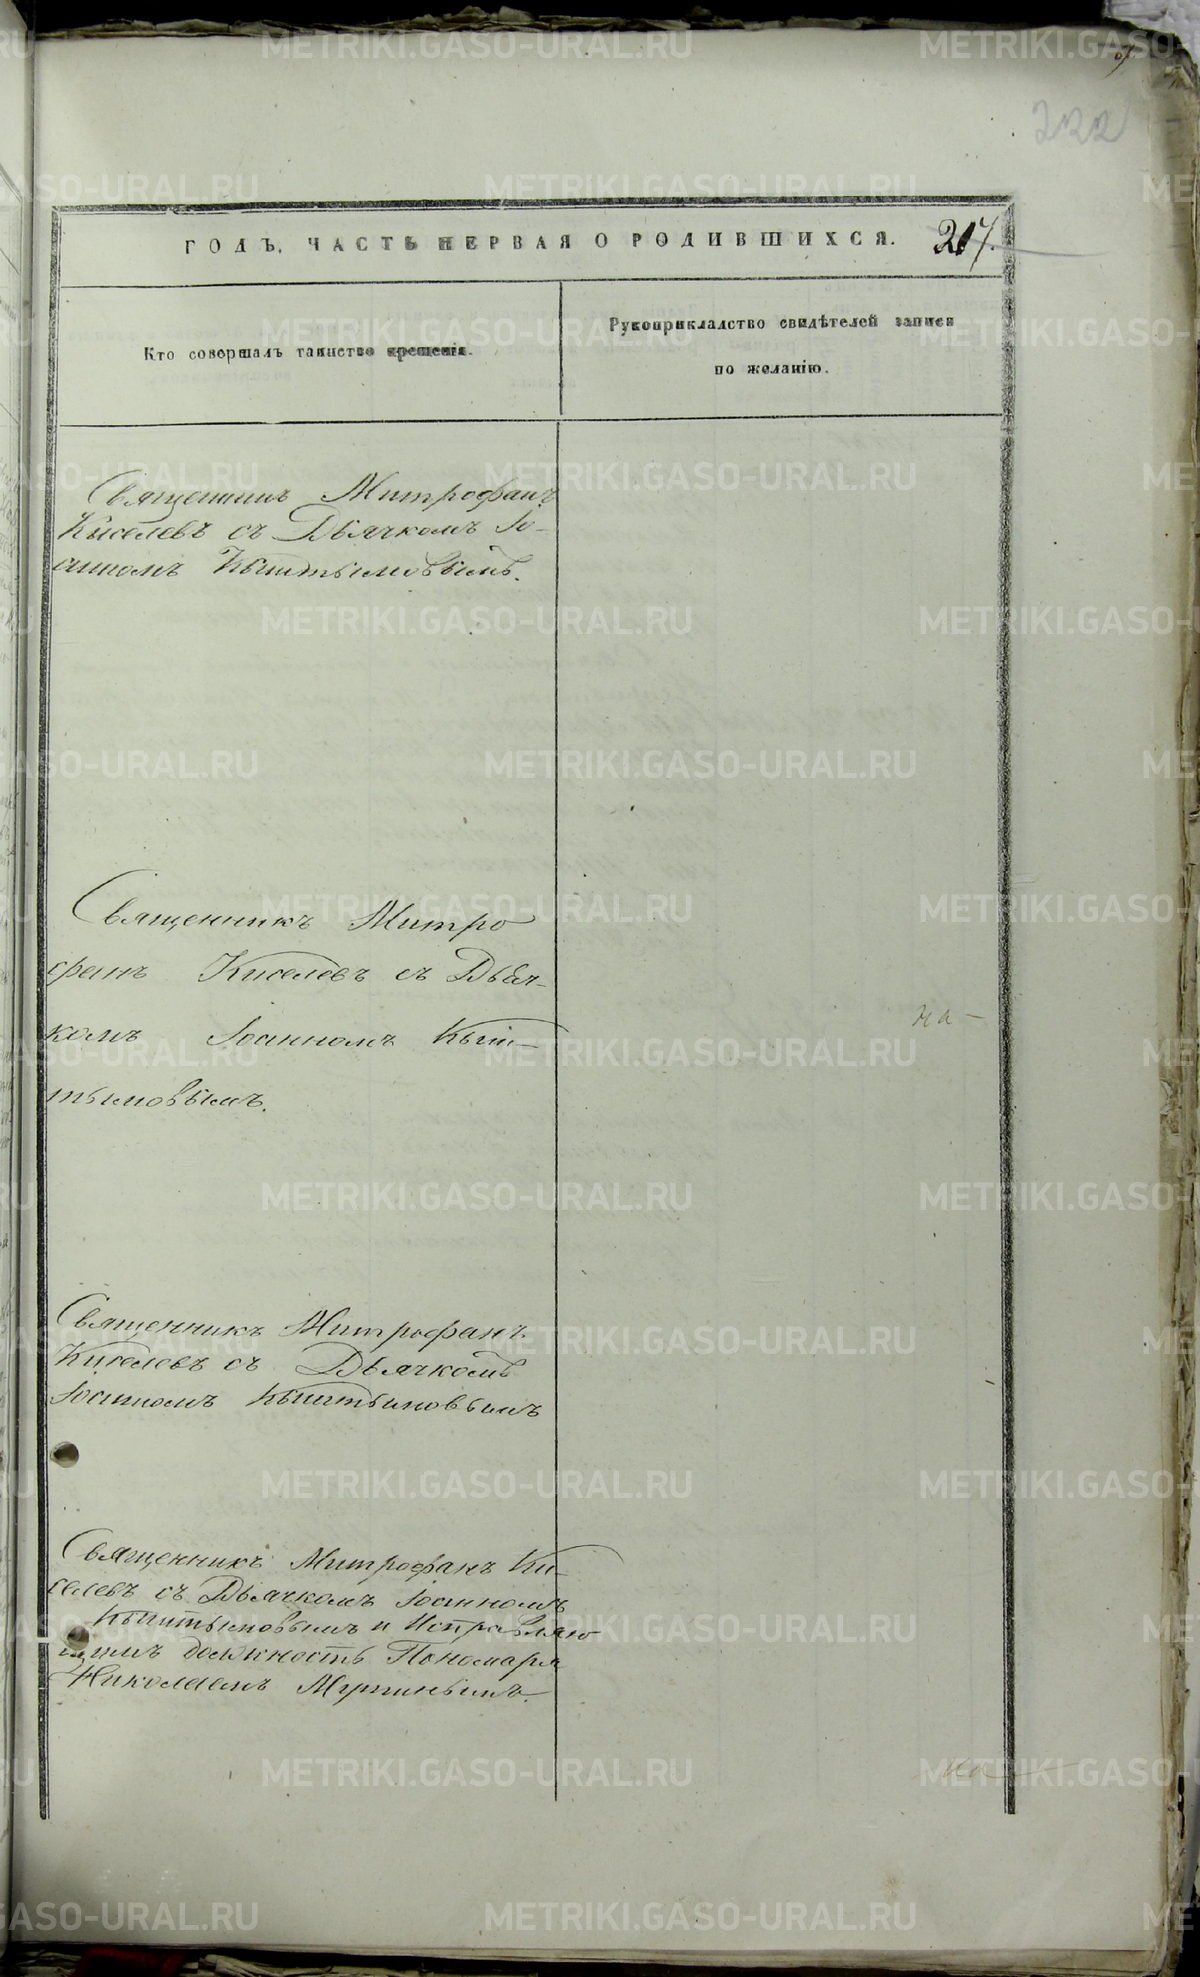 222
ГОДЪ, ЧАСТЬ ПЕРВАЯ О РОДИВШИХСЯ. 217.
Кто совершалъ таинство крещенія.
Рукоприкладство свидѣтелей записи
по желанію.
Священникъ Митрофанъ
Киселевъ съ Дьячкомъ Іо-
анномъ Кыштымовымъ.
Священникъ Митро
фанъ Киселевъ съ Дьяч-
комъ Іоанномъ Кыш-
тымовымъ.
на-
Священникъ Митрофанъ
Киселевъ съ Дьячкомъ
Іоанномъ Кыштымовымъ
Священникъ Митрофанъ Ки-
селевъ съ Дьячкомъ Іоанномъ
Кыштымовымъ и Исправляю
щимъ должность Пономаря
Николаемъ
METRIKI.GASO-URAL.RU